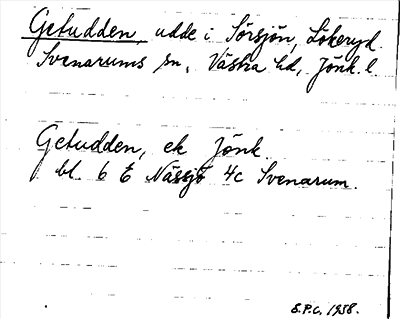 Getudden, udde i Sörsjön, Lökeryd
Svenarums sn, Västra hd, Jönk. l
Getudden, ek Jönk.
bl. 6 E Nässjö 4c Svenarum.
S.P.C. 1938.